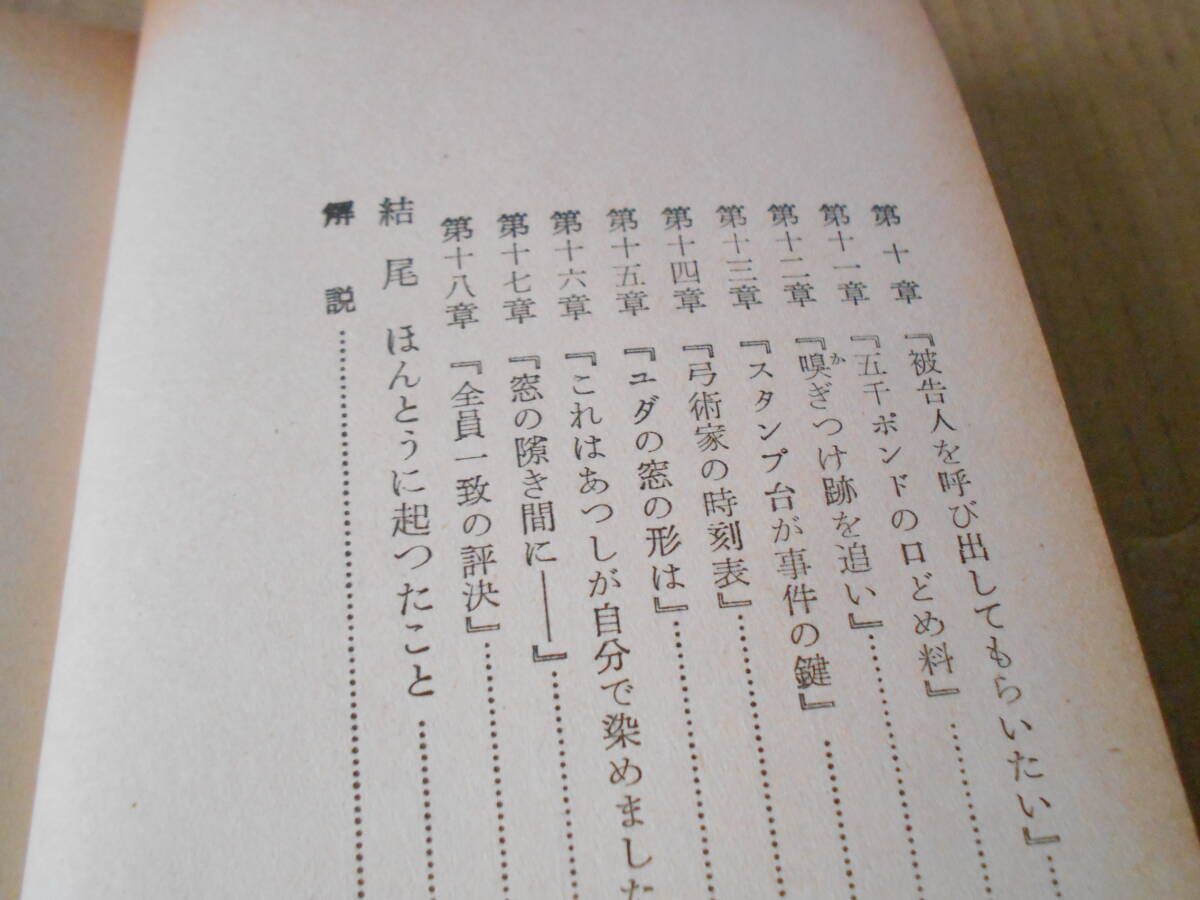 第十章 『被告人を呼び出してもらいたい』
第十一章 『五千ポンドの口どめ料』
第十二章 『嗅ぎつけ跡を追い』
第十三章 『スタンプ台が事件の鍵』
第十四章 『弓術家の時刻表』
第十五章 『ユダの窓の形は』
第十六章 『これはあつしが自分で染めました
第十七章 『窓の隙き間に――』
第十八章 『全員一致の評決』
結尾 ほんとうに起つたこと
解説